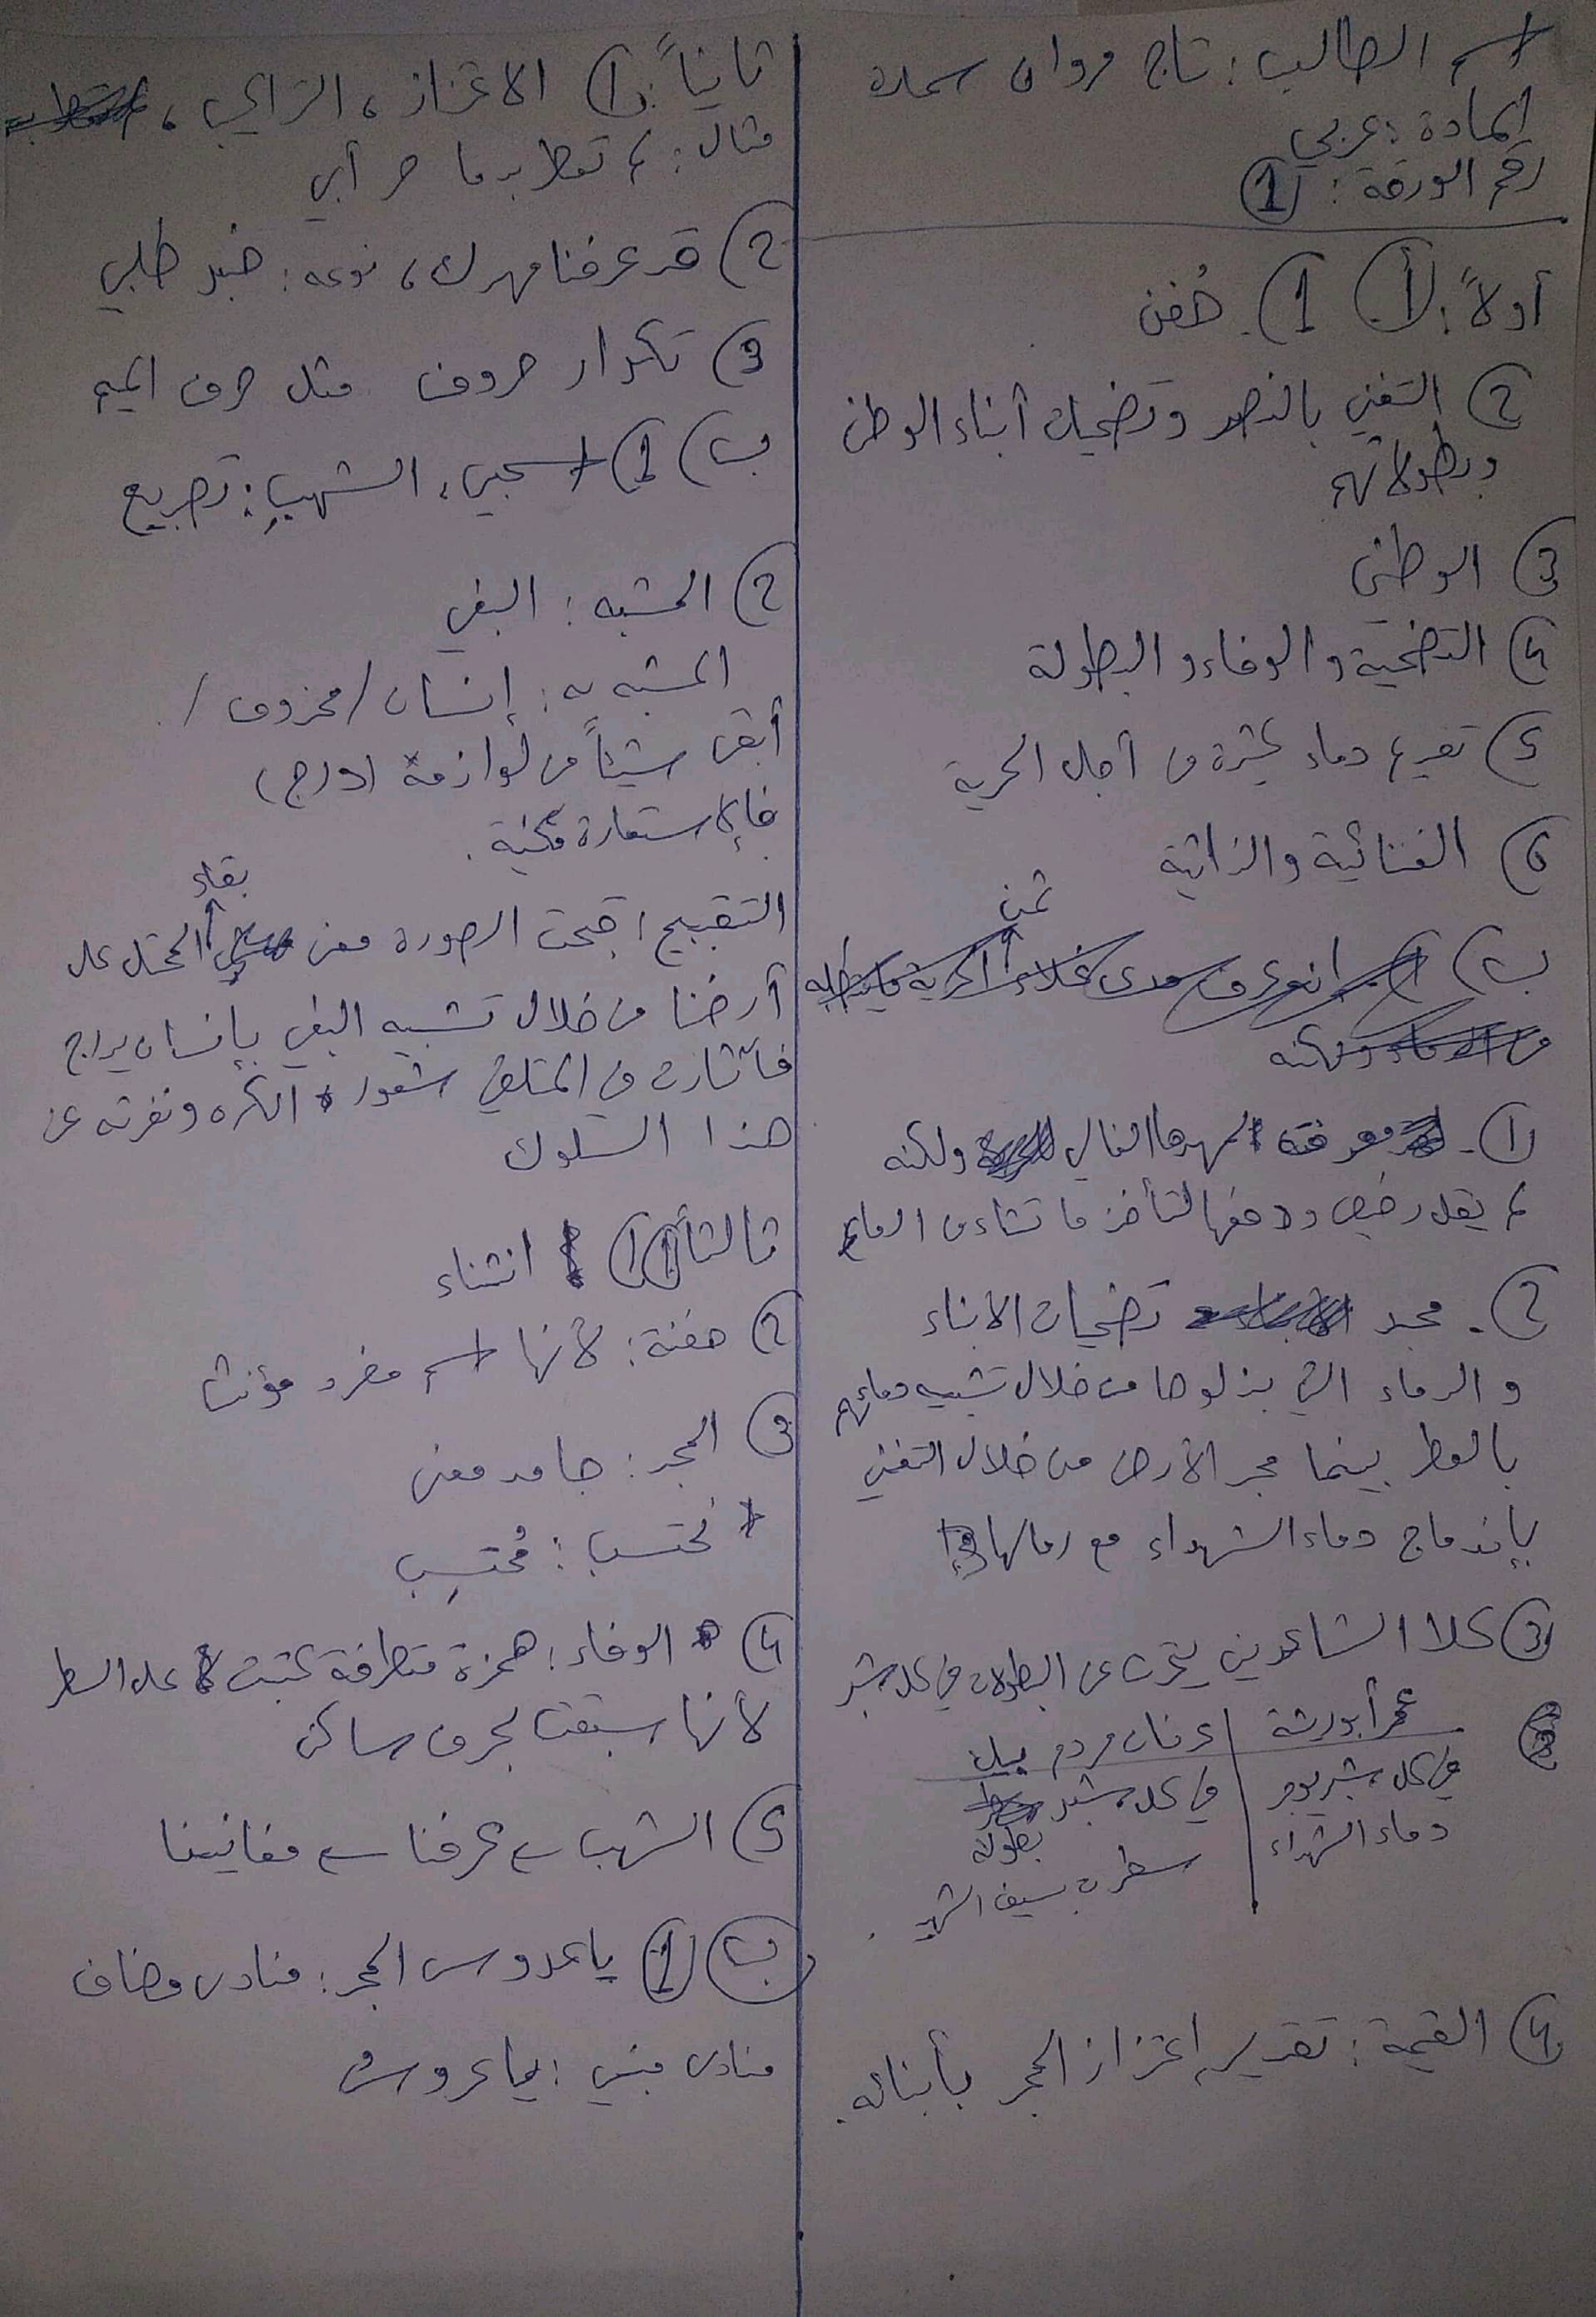 اسم الطالب: تاج مروان سمارة
المادة: عربي
رقم الورقة: 1
أولاً: أ. 1). حُفن
2) التغني بالنصر وتضحيات أبناء الوطن
وبطولاتهم
3) الوطني
4) التضحية والوفاء والبطولة
5) تقديم دماء كثيرة من أجل الحرية
6) الغنائية والذاتية
ب)
ثمن
من الدماء ولكنه
1). معرفته لمهرها الغالي ولكنه
لم يقل رخيص ودفعها لتأخذ ما تشاء من الدماء
2). مجد تضحيات الابناء
و الدماء التي بذلوها من خلال تشبيه دمائهم
بالعطر بينما مجد الأرض من خلال التغني
بإندماج دماء الشهداء مع رمالها
3) كلا الشاعرين يتحدث عن البطولات في كل شبر
عمر أبو ريشة | عدنان مردم بيك
في كل شبر يوجد | في كل شبر
دماء الشهداء | بطولة
سطرت بسيف الشهيد.
4) القيمة: تقدير إعتزاز المجد بأبنائه.
ثانياً: 1) الاعتزاز، التراكيب،
مثال: لم تعطر بدما حر أبي
2) قد عرفنا مهرك، نوعه: خبر طلبي
3) تكرار حروف مثل حرف الميم
ب) 1) اسحبي، الشهبِ: تصريع
2) المشبه: البغي
المشبه به: إنسان /محذوف/.
أبقى شيئاً من لوازمه (درج)
فالإستعارة مكنية.
بقاء
التقبيح: قبحت الصورة معنى المحتل على
أرضنا من خلال تشبيه البغي بإنسان يدرج
فأثارت في المتلقي شعور الكره ونفرته عن
هذا السلوك
ثالثاً: أ) 1) انتشاء
2) حفنة: لأنها اسم مفرد مؤنث
3) المجد: جامد معنى
نحتسب: مُحتسِب
4) الوفاء: همزة متطرفة كتبت على السطر
لأنها سبقت بحرف ساكن
5) الشهب ← عرفنا ← مغانينا
ب) 1) يا عروس المجد: منادى مضاف
منادى مبني: يا عروسُ